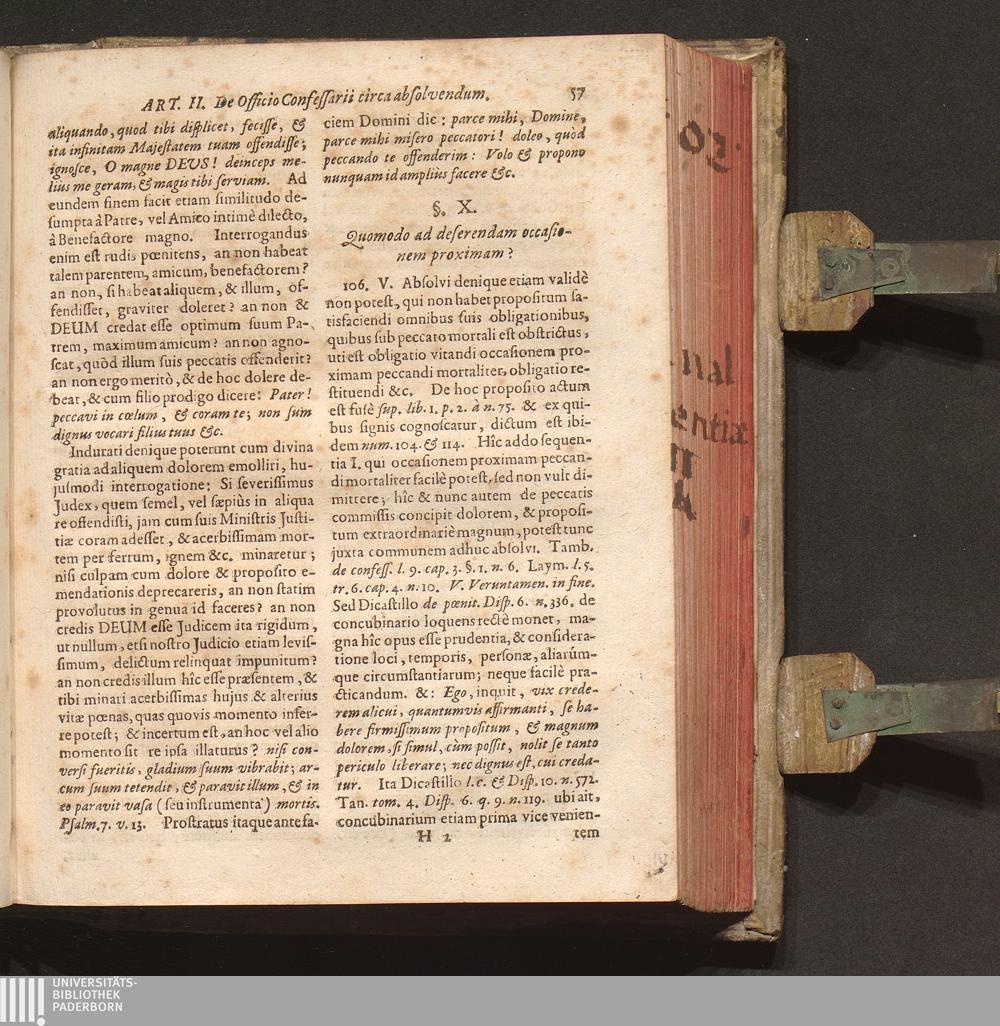 ART. II. De Officio Confeſſarii circa abſolvendum. 57
aliquando, quod tibi diſplicet, feciſſe, &
ita infinitam Majeſtatem tuam offendiſſe;
ignoſce, O magne DEUS! deinceps me-
lius me geram, & magis tibi ſerviam. Ad
eundem finem facit etiam ſimilitudo de-
ſumpta à Patre, vel Amico intimè dilecto,
à Benefactore magno. Interrogandus
enim eſt rudis pœnitens, an non habeat
talem parentem, amicum, benefactorem?
an non, ſi habeat aliquem, & illum, of-
fendiſſet, graviter doleret? an non &
DEUM credat eſſe optimum ſuum Pa-
trem, maximum amicum? an non agno-
ſcat, quòd illum ſuis peccatis offenderit?
an non ergo meritò, & de hoc dolere de-
beat, & cum filio prodigo dicere: Pater!
peccavi in cœlum, & coram te; non ſum
dignus vocari filius tuus &c.
Indurati denique poterunt cum divina
gratia ad aliquem dolorem emolliri, hu-
juſmodi interrogatione: Si ſeveriſſimus
Judex, quem ſemel, vel ſæpiùs in aliqua
re offendiſti, jam cum ſuis Miniſtris Juſti-
tiæ coram adeſſet, & acerbiſſimam mor-
tem per ferrum, ignem &c. minaretur;
niſi culpam cum dolore & propoſito e-
mendationis deprecareris, an non ſtatim
provolutus in genua id faceres? an non
credis DEUM eſſe Judicem ita rigidum,
ut nullum, etſi noſtro Judicio etiam leviſ-
ſimum, delictum relinquat impunitum?
an non credis illum hîc eſſe præſentem, &
tibi minari acerbiſſimas hujus & alterius
vitæ pœnas, quas quovis momento infer-
re poteſt; & incertum eſt, an hoc vel alio
momento ſit re ipſa illaturus? niſi con-
verſi fueritis, gladium ſuum vibrabit; ar-
cum ſuum tetendit, & paravit illum, & in
eo paravit vaſa (ſeu inſtrumenta) mortis.
Pſalm. 7. v. 13. Proſtratus itaque ante fa-
ciem Domini dic: parce mihi, Domine,
parce mihi miſero peccatori! doleo, quòd
peccando te offenderim: Volo & propono
nunquam id ampliùs facere &c.
§. X.
Quomodo ad deſerendam occaſio-
nem proximam?
106. V. Abſolvi denique etiam validè
non poteſt, qui non habet propoſitum ſa-
tisfaciendi omnibus ſuis obligationibus,
quibus ſub peccato mortali eſt obſtrictus,
uti eſt obligatio vitandi occaſionem pro-
ximam peccandi mortaliter, obligatio re-
ſtituendi &c. De hoc propoſito actum
eſt fuſè ſup. lib. 1. p. 2. à n. 75. & ex qui-
bus ſignis cognoſcatur, dictum eſt ibi-
dem num. 104. & 114. Hîc addo ſequen-
tia I. qui occaſionem proximam peccan-
di mortaliter facilè poteſt, ſed non vult di-
mittere; hîc & nunc autem de peccatis
commiſſis concipit dolorem, & propoſi-
tum extraordinariè magnum, poteſt tunc
juxta communem adhuc abſolvi. Tamb.
de confeſſ. l. 9. cap. 3. §. 1. n. 6. Laym. l. 5.
tr. 6. cap. 4. n. 10. V. Veruntamen. in fine.
Sed Dicaſtillo de pœnit. Diſp. 6. n. 336. de
concubinario loquens rectè monet, ma-
gna hîc opus eſſe prudentia, & conſidera-
tione loci, temporis, perſonæ, aliarúm-
que circumſtantiarum; neque facilè pra-
cticandum. &: Ego, inquit, vix crede-
rem alicui, quantumvis affirmanti, ſe ha-
bere firmiſſimum propoſitum, & magnum
dolorem, ſi ſimul, cùm poſſit, nolit ſe tanto
periculo liberare; nec dignus eſt, cui creda-
tur. Ita Dicaſtillo l. c. & Diſp. 10. n. 572.
Tan. tom. 4. Diſp. 6. q. 9. n. 119. ubi ait,
concubinarium etiam prima vice venien-
H 2 tem
nal
entiæ
II
UNIVERSITÄTS-
BIBLIOTHEK
PADERBORN